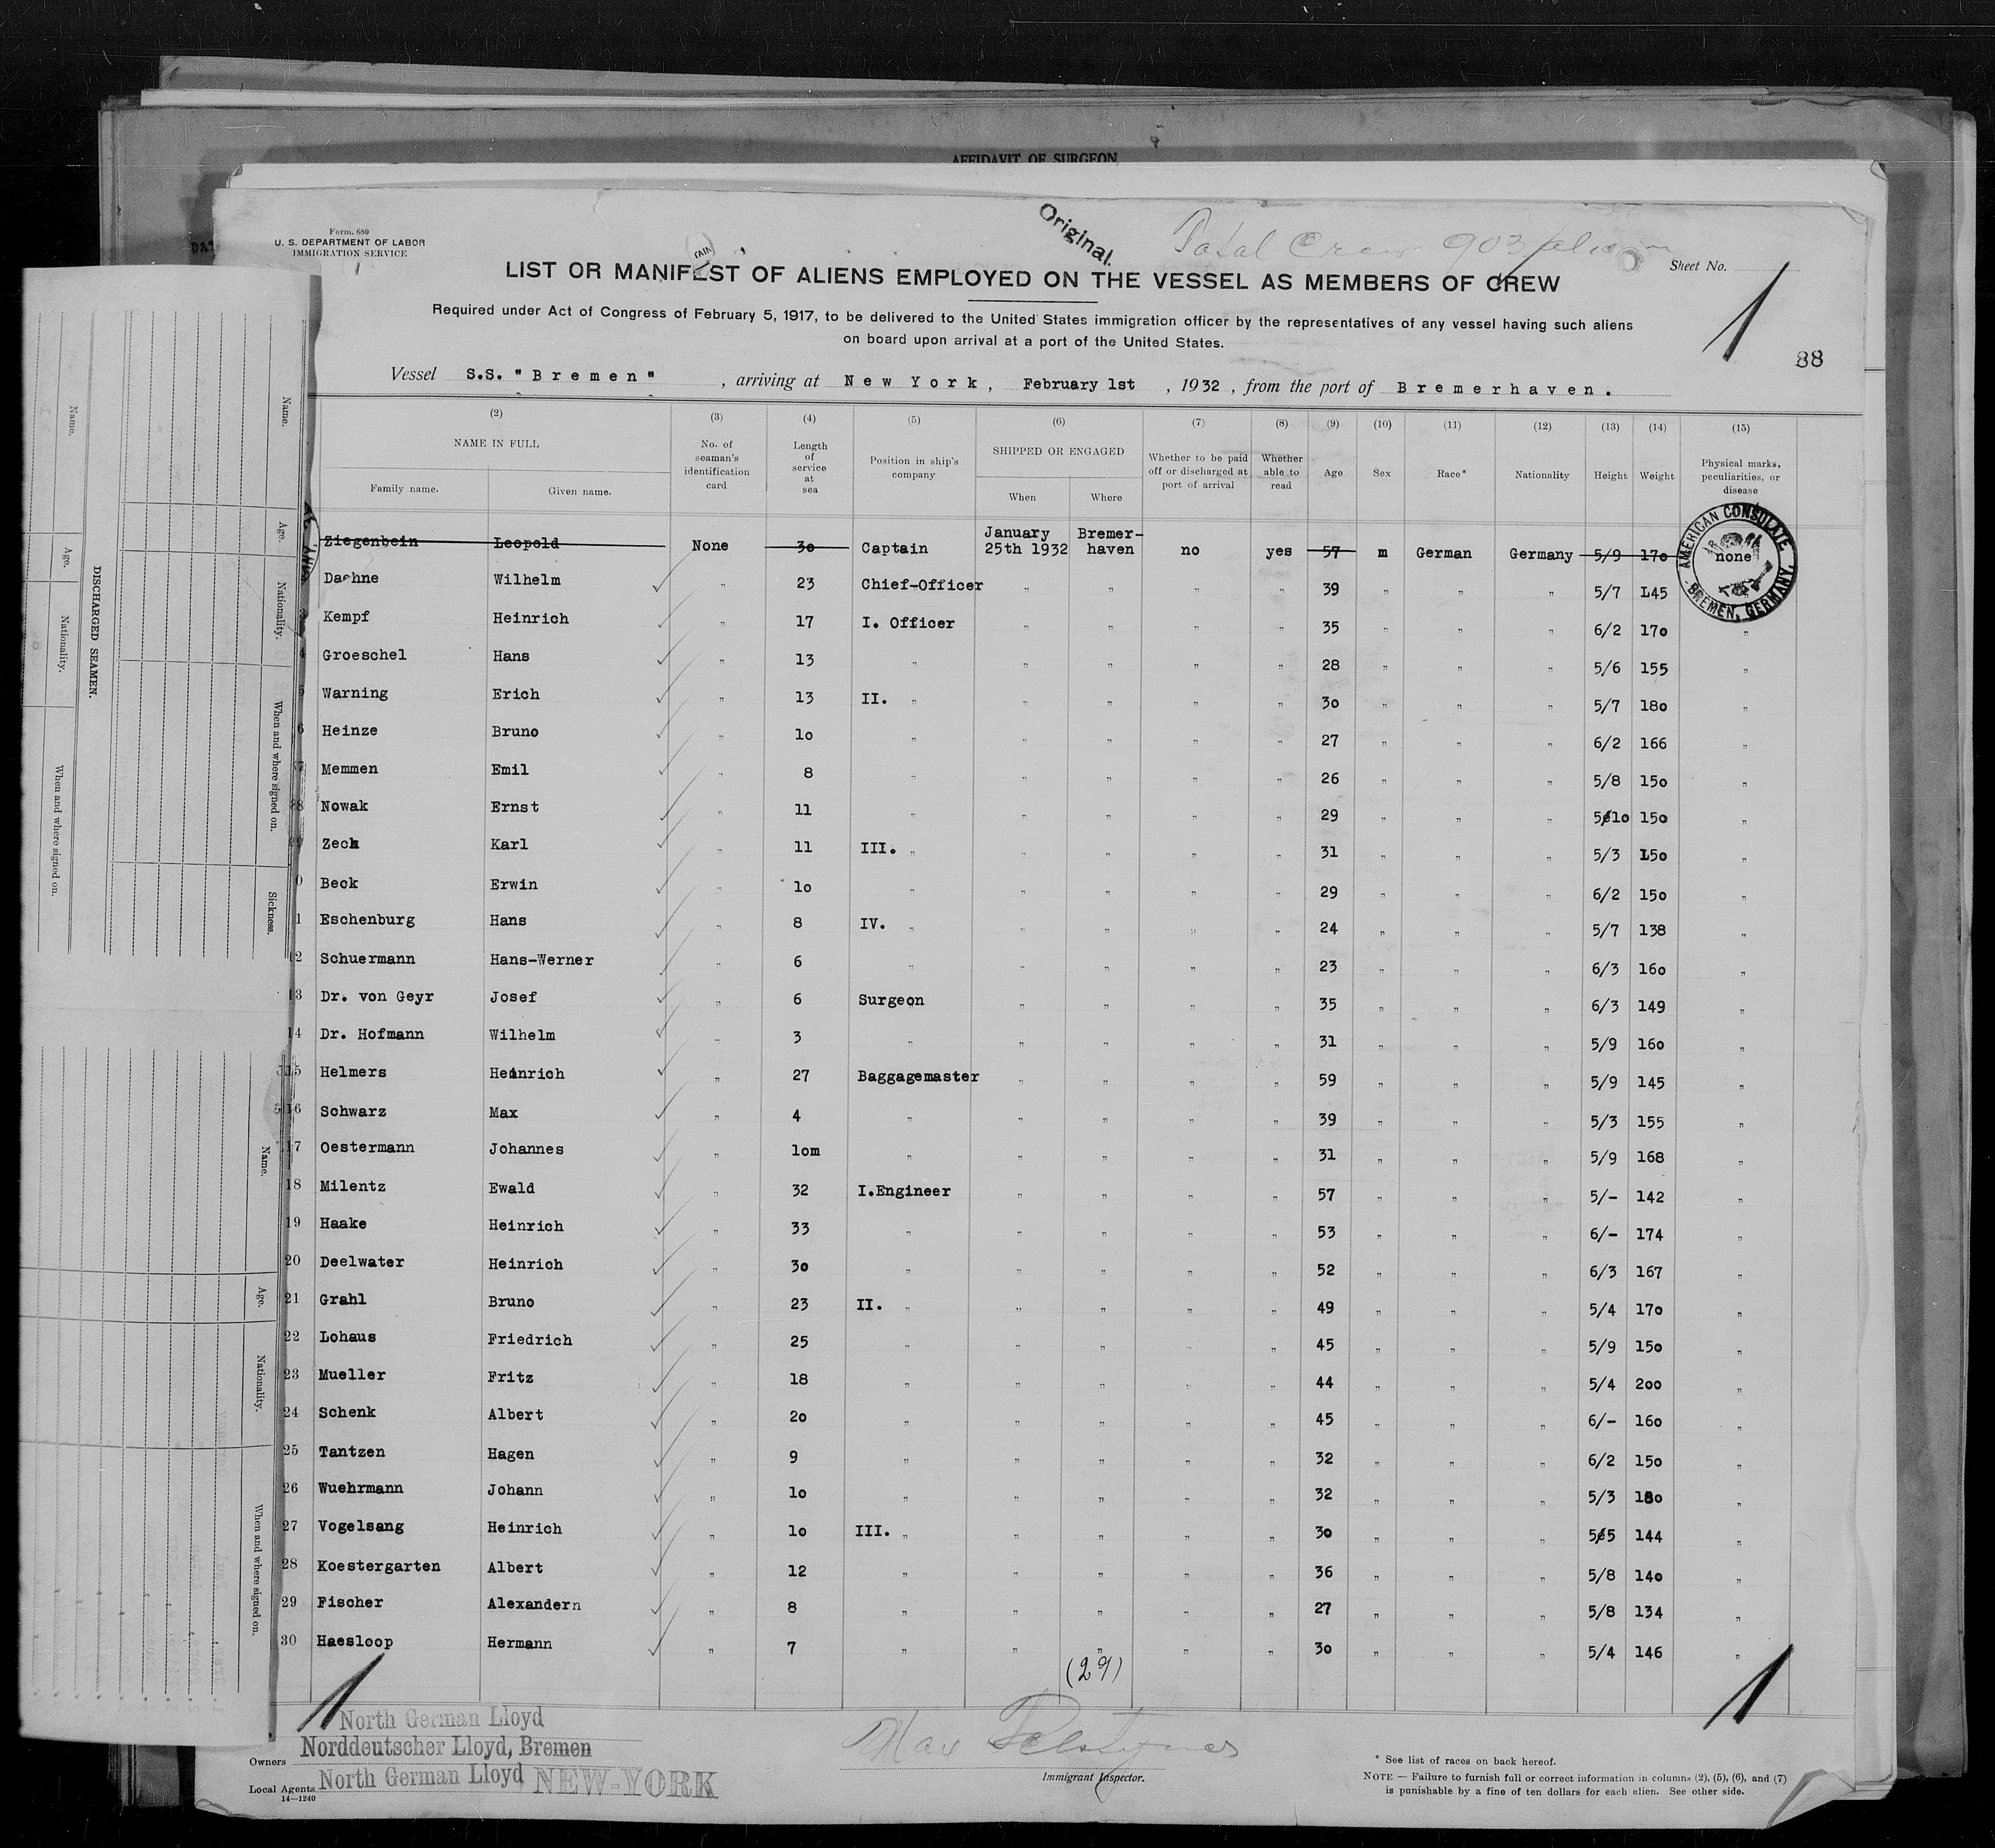 AFFIDAVIT OF SURGEON
Form. 680
U. S. DEPARTMENT OF LABOR
IMMIGRATION SERVICE
Original.
Total Crew 903
Sheet No.
1
LIST OR MANIFEST OF ALIENS EMPLOYED ON THE VESSEL AS MEMBERS OF CREW
Required under Act of Congress of February 5, 1917, to be delivered to the United States immigration officer by the representatives of any vessel having such aliens
on board upon arrival at a port of the United States.
88
Vessel S.S. "Bremen", arriving at New York, February 1st, 1932, from the port of Bremerhaven.
(2) (3) (4) (5) (6) (7) (8) (9) (10) (11) (12) (13) (14) (15)
NAME IN FULL No. of seaman's identification card Length of service at sea Position in ship's company SHIPPED OR ENGAGED Whether to be paid off or discharged at port of arrival Whether able to read Age Sex Race* Nationality Height Weight Physical marks, peculiarities, or disease
Family name. Given name. When Where
Ziegenbein Leopold None 30 Captain January 25th 1932 Bremer-haven no yes 57 m German Germany 5/9 170 none
AMERICAN CONSULATE BREMEN, GERMANY.
Daehne Wilhelm " 23 Chief-Officer " " " " 39 " " " 5/7 145 "
Kempf Heinrich " 17 I. Officer " " " " 35 " " " 6/2 170 "
4 Groeschel Hans " 13 " " " " " 28 " " " 5/6 155 "
5 Warning Erich " 13 II. " " " " " 30 " " " 5/7 180 "
6 Heinze Bruno " 10 " " " " " 27 " " " 6/2 166 "
7 Memmen Emil " 8 " " " " " 26 " " " 5/8 150 "
8 Nowak Ernst " 11 " " " " " 29 " " " 5/10 150 "
9 Zeck Karl " 11 III. " " " " " 31 " " " 5/3 150 "
0 Beck Erwin " 10 " " " " " 29 " " " 6/2 150 "
1 Eschenburg Hans " 8 IV. " " " " " 24 " " " 5/7 138 "
2 Schuermann Hans-Werner " 6 " " " " " 23 " " " 6/3 160 "
13 Dr. von Geyr Josef " 6 Surgeon " " " " 35 " " " 6/3 149 "
14 Dr. Hofmann Wilhelm " 3 " " " " " 31 " " " 5/9 160 "
15 Helmers Heinrich " 27 Baggagemaster " " " " 59 " " " 5/9 145 "
16 Schwarz Max " 4 " " " " " 39 " " " 5/3 155 "
17 Oestermann Johannes " 10m " " " " " 31 " " " 5/9 168 "
18 Milentz Ewald " 32 I.Engineer " " " " 57 " " " 5/- 142 "
19 Haake Heinrich " 33 " " " " " 53 " " " 6/- 174 "
20 Deelwater Heinrich " 30 " " " " " 52 " " " 6/3 167 "
21 Grahl Bruno " 23 II. " " " " " 49 " " " 5/4 170 "
22 Lohaus Friedrich " 25 " " " " " 45 " " " 5/9 150 "
23 Mueller Fritz " 18 " " " " " 44 " " " 5/4 200 "
24 Schenk Albert " 20 " " " " " 45 " " " 6/- 160 "
25 Tantzen Hagen " 9 " " " " " 32 " " " 6/2 150 "
26 Wuehrmann Johann " 10 " " " " " 32 " " " 5/3 180 "
27 Vogelsang Heinrich " 10 III. " " " " " 30 " " " 5/5 144 "
28 Koestergarten Albert " 12 " " " " " 36 " " " 5/8 140 "
29 Fischer Alexandern " 8 " " " " " 27 " " " 5/8 134 "
30 Haesloop Hermann " 7 " " " " " 30 " " " 5/4 146 "
(29)
1 1
North German Lloyd
Owners Norddeutscher Lloyd, Bremen
Local Agents North German Lloyd NEW-YORK
14—1240
Max
Immigrant Inspector.
* See list of races on back hereof.
NOTE — Failure to furnish full or correct information in columns (2), (5), (6), and (7)
is punishable by a fine of ten dollars for each alien. See other side.
Name. Age. Nationality. When and where signed on. Sickness.
DISCHARGED SEAMEN.
Name. Age. Nationality. When and where signed on.
Name. Age. Nationality. When and where signed on.